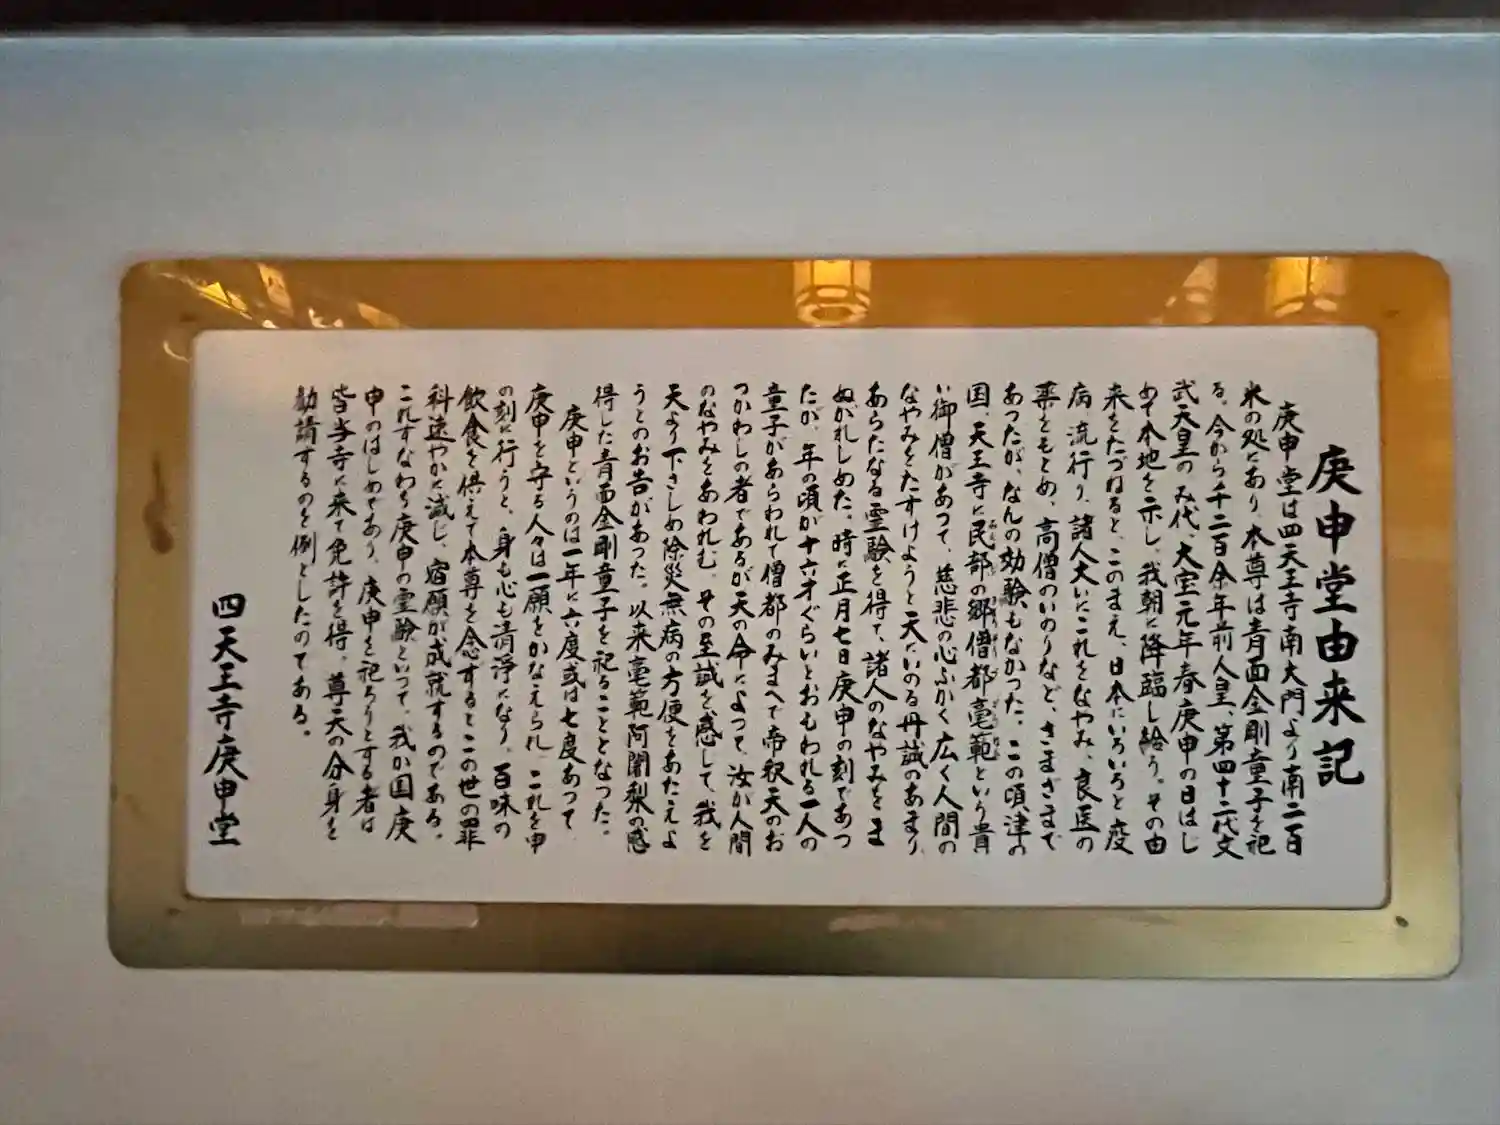 庚申堂由来記
庚申堂は四天王寺南大門より南二百
米の処にあり、本尊は青面金剛童子を祀
る。今から千二百余年前人皇、第四十二代文
武天皇のみ代、大宝元年春庚申の日はじ
めて本地を示し、我朝に降臨し給う。その由
来をたづねると、このまえ、日本にいろいろと疫
病流行り、諸人大いにこれをなやみ、良医の
薬をもとめ、高僧のいのりなど、さまざまで
あつたが、なんの効験もなかつた。この頃、津の
国、天王寺に民部の郷僧都毫範という貴
い御僧があつて、慈悲の心ふかく広く人間の
なやみをたすけようと天にいのる丹誠のあまり、
あらたなる霊験を得て、諸人のなやみをま
ぬがれしめた。時に正月七日庚申の刻であつ
たが、年の頃が十六才ぐらいとおもわれる一人の
童子があらわれて僧都のみまへで帝釈天のお
つかわしの者であるが天の命によつて、汝が人間
のなやみをあわれむ。その至誠を感して、我を
天より下さしめ除災無病の方便をあたえよ
うとのお告があつた。以来毫範阿闍梨の感
得した青面金剛童子を祀ることとなつた。
庚申というのは一年に六度或は七度あつて
庚申を守る人々は一願をかなえられ、これを申
の刻に行うと、身も心も清浄になり。百味の
飲食を供えて本尊を念ずるとこの世の罪
科速やかに滅じ、宿願が成就するのである。
これすなわち庚申の霊験といつて。我か国庚
申のはしめであり、庚申を祀ろうとする者は
皆当寺に来て免許を得。尊天の分身を
勧請するのを例としたのてある。
四天王寺庚申堂